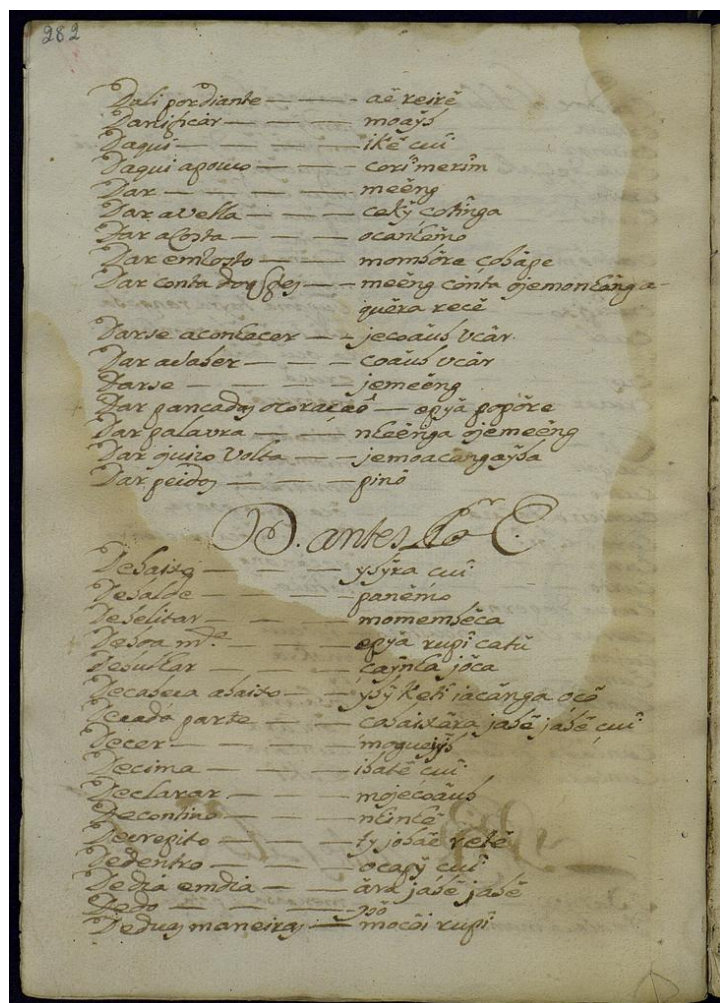 282
Dali por diante — — — aẽ reirẽ
Danificar — — — moaỹb
Daqui — — — ikẽ cuî
Daqui apouco — — — corî merim
Dar — — — — meẽng
Dar a vella — — — cekỹ cotinga
Dar a Costa — — —
Dar em Rosto — — — mombòre cobàpe
Dar conta — — meẽng cònta ojemontàng a-
quẽra recẽ
Darse aconhecer — — jecoaùb ucàr
Dar a saber — — — coaùb ucàr
Darse — — — jemeẽng
Dar pancadas o coração — epỹà popòre
Dar palavra — — nheẽnga ojemeẽng
Dar juizo Volta — — jemoacangaỹba
Dar peidos — — — pinõ
D. antes do E.
Debaixo — — — ybỹra cuî
Debalde — — — panẽmo
Debelitar — — — momembẽca
De boa mde — — — epỹà rupî catù
Desuttar — — —
De cabeca abaixo — — ybỹ ketî iacànga ocõ
De cada parte — — cobaixàra jabẽ jabẽ cuî
Decer — — — —
Decima — — — ibatẽ cuî
Declarar — — — mojecoaùb
Decontino — — — nhinhẽ
Decrepito — — — tyjobàẽ retẽ
Dedentro — — — ocapỹ cuî
Dedia emdia — — àra jabẽ jabẽ
Dedo — — — — põ
Deduas maneiras — — mocõi rupî